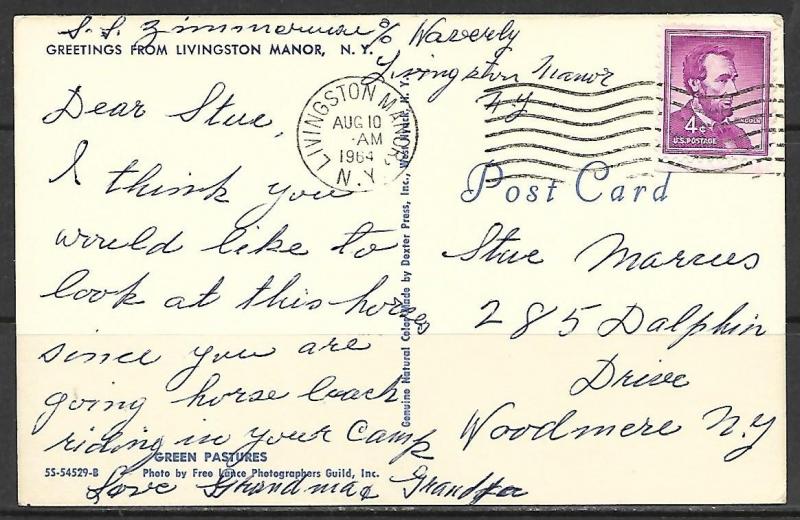 S. S. Zimmerman c/o Waverly
Livingston Manor
N Y
GREETINGS FROM LIVINGSTON MANOR, N. Y.
LIVINGSTON MANOR
AUG 10
AM
1964
N. Y.
4¢
LINCOLN
U.S. POSTAGE
Dear Stue,
I think you
would like to
look at this horse
since you are
going horse back
riding in your Camp
Love Grandma & Grandpa
GREEN PASTURES
5S-54529-B
Photo by Free Lance Photographers Guild, Inc.
Genuine Natural Color Made by Dexter Press, Inc., West Nyack, N. Y.
Post Card
Stue Marcus
285 Dalphin
Drive
Woodmere N.Y